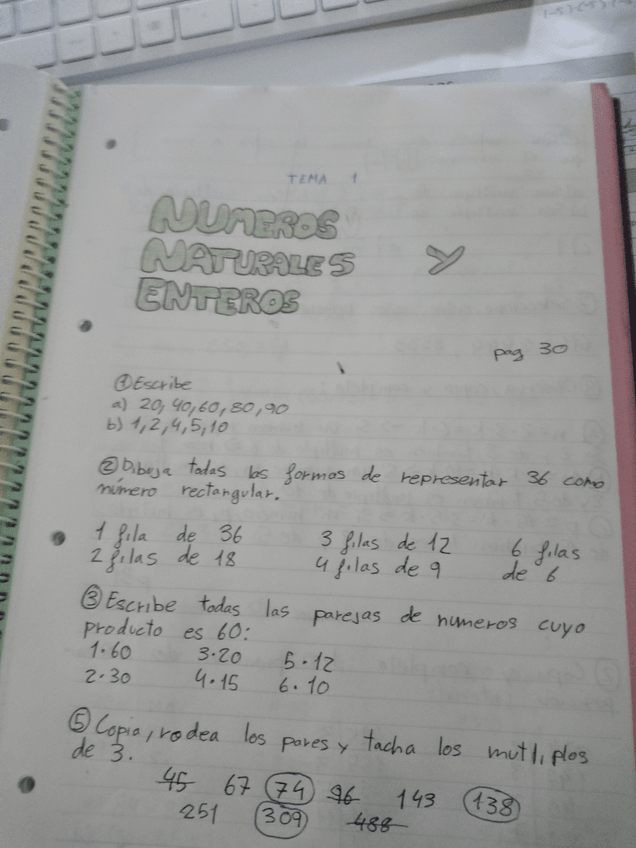 TEMA 1
NUMEROS
NATURALES Y
ENTEROS
pag 30
① Escribe
a) 20, 40, 60, 80, 90
b) 1, 2, 4, 5, 10
② Dibuja todas las formas de representar 36 como
número rectangular.
1 fila de 36 3 filas de 12 6 filas
2 filas de 18 4 filas de 9 de 6
③ Escribe todas las parejas de numeros cuyo
producto es 60:
1·60 3·20 5·12
2·30 4·15 6·10
⑤ Copia, rodea los pares y tacha los mutliplos
de 3.
45 67 74 96 143 138
251 309 488